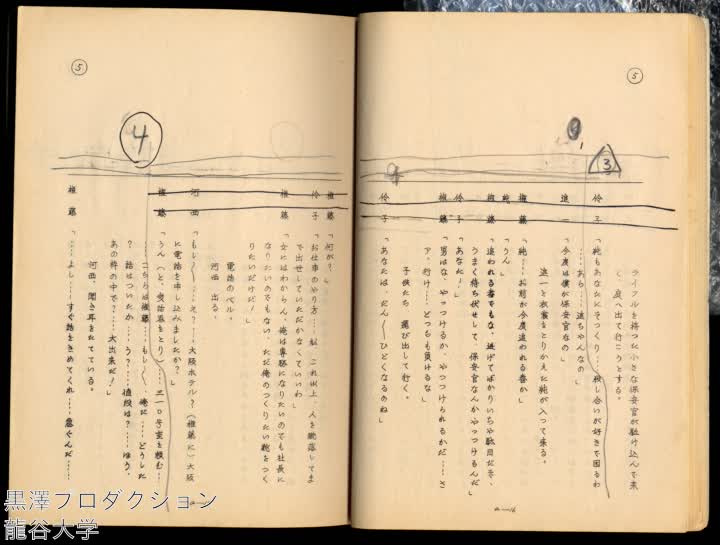 5
3
ライフルを持った小さな保安官が駈け込んで来
て、庭へ出て行こうとする。
伶子「純もあなたにそっくり……殺し合いが好きで困るわ
……あら……進ちゃんなの」
進一「今度は僕が保安官なの」
進一と衣裳をとりかえた純が入って来る。
権藤「純……お前が今度追われる番か」
純「うん」
権藤「追われる者でもな、逃げてばかりいちゃ駄目だぞ、
うまく待ち伏せして、保安官なんかやっつけるんだ」
伶子「あなた！」
権藤「男はな、やっつけるか、やっつけられるかだ……さ
ア、行け……どっちも負けるな」
子供たち、飛び出して行く。
伶子「あなたは、だん〱ひどくなるのね」
a—16
5
4
権藤「何が？」
伶子「お仕事のやり方……私、これ以上、人を蹴落してま
で出世していただかなくていいわ」
権藤「女にはわからん、俺は専務になりたいのでも社長に
なりたいのでもない、ただ俺のつくりたい靴をつく
りたいだけだ！」
電話のベル。
河西、出る。
河西「もし〱……え？……大阪ホテル？（権藤に）大阪
に電話を申し込みましたか？」
権藤「うん（と、受話器をとり）……三一〇号室を頼む…
……こちらは権藤……もし〱……俺だ……どうした
？話はついたか……う？……値段は？……ほう、
あの株の中で？……大出来だ！」
河西、聞き耳をたてている。
権藤「……よし……すぐ話をきめてくれ……急ぐんだ……
黒澤プロダクション
龍谷大学